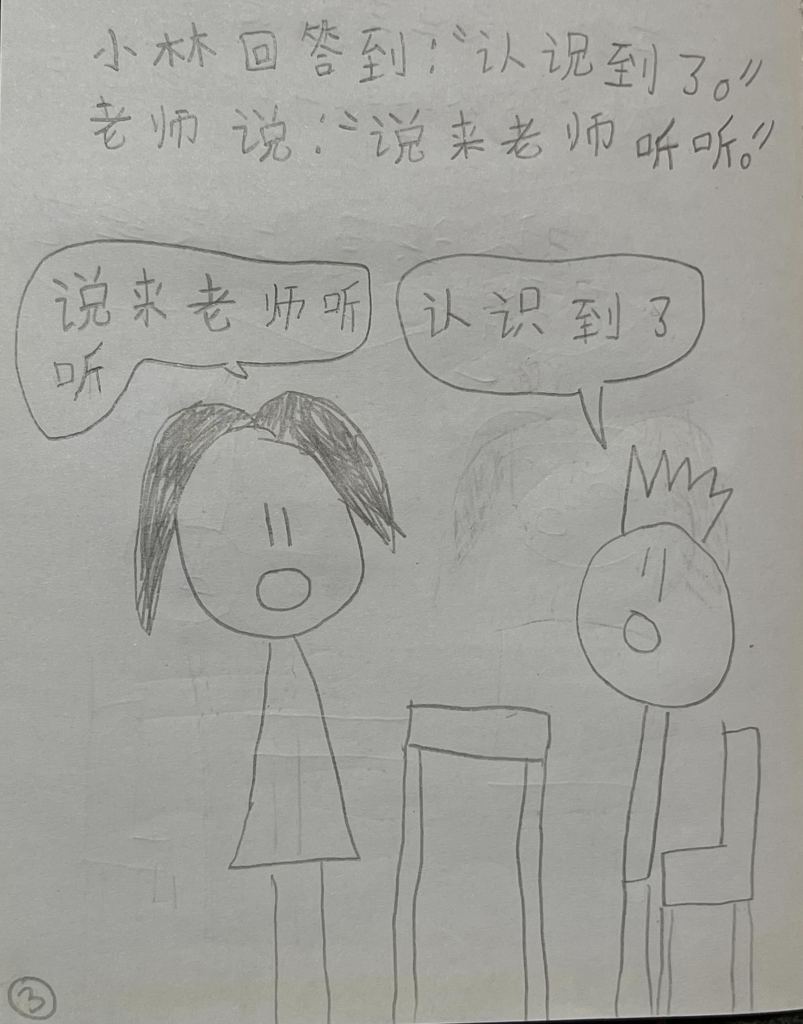 小林回答到：“认识到了。”
老师说：“说来老师听听。”
说来老师听
听
认识到了
③